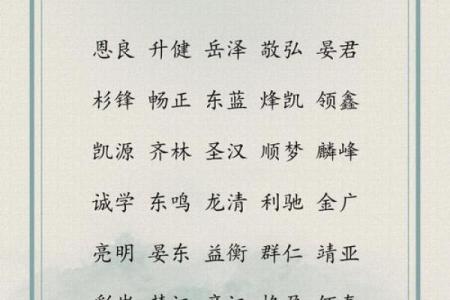 恩良 升健 岳泽 敬弘 晏君
杉锋 畅正 东蓝 烽凯 领鑫
凯源 齐林 圣汉 顺梦 麟峰
诚学 东鸣 龙清 利驰 金广
亮明 晏东 益衡 群仁 靖亚